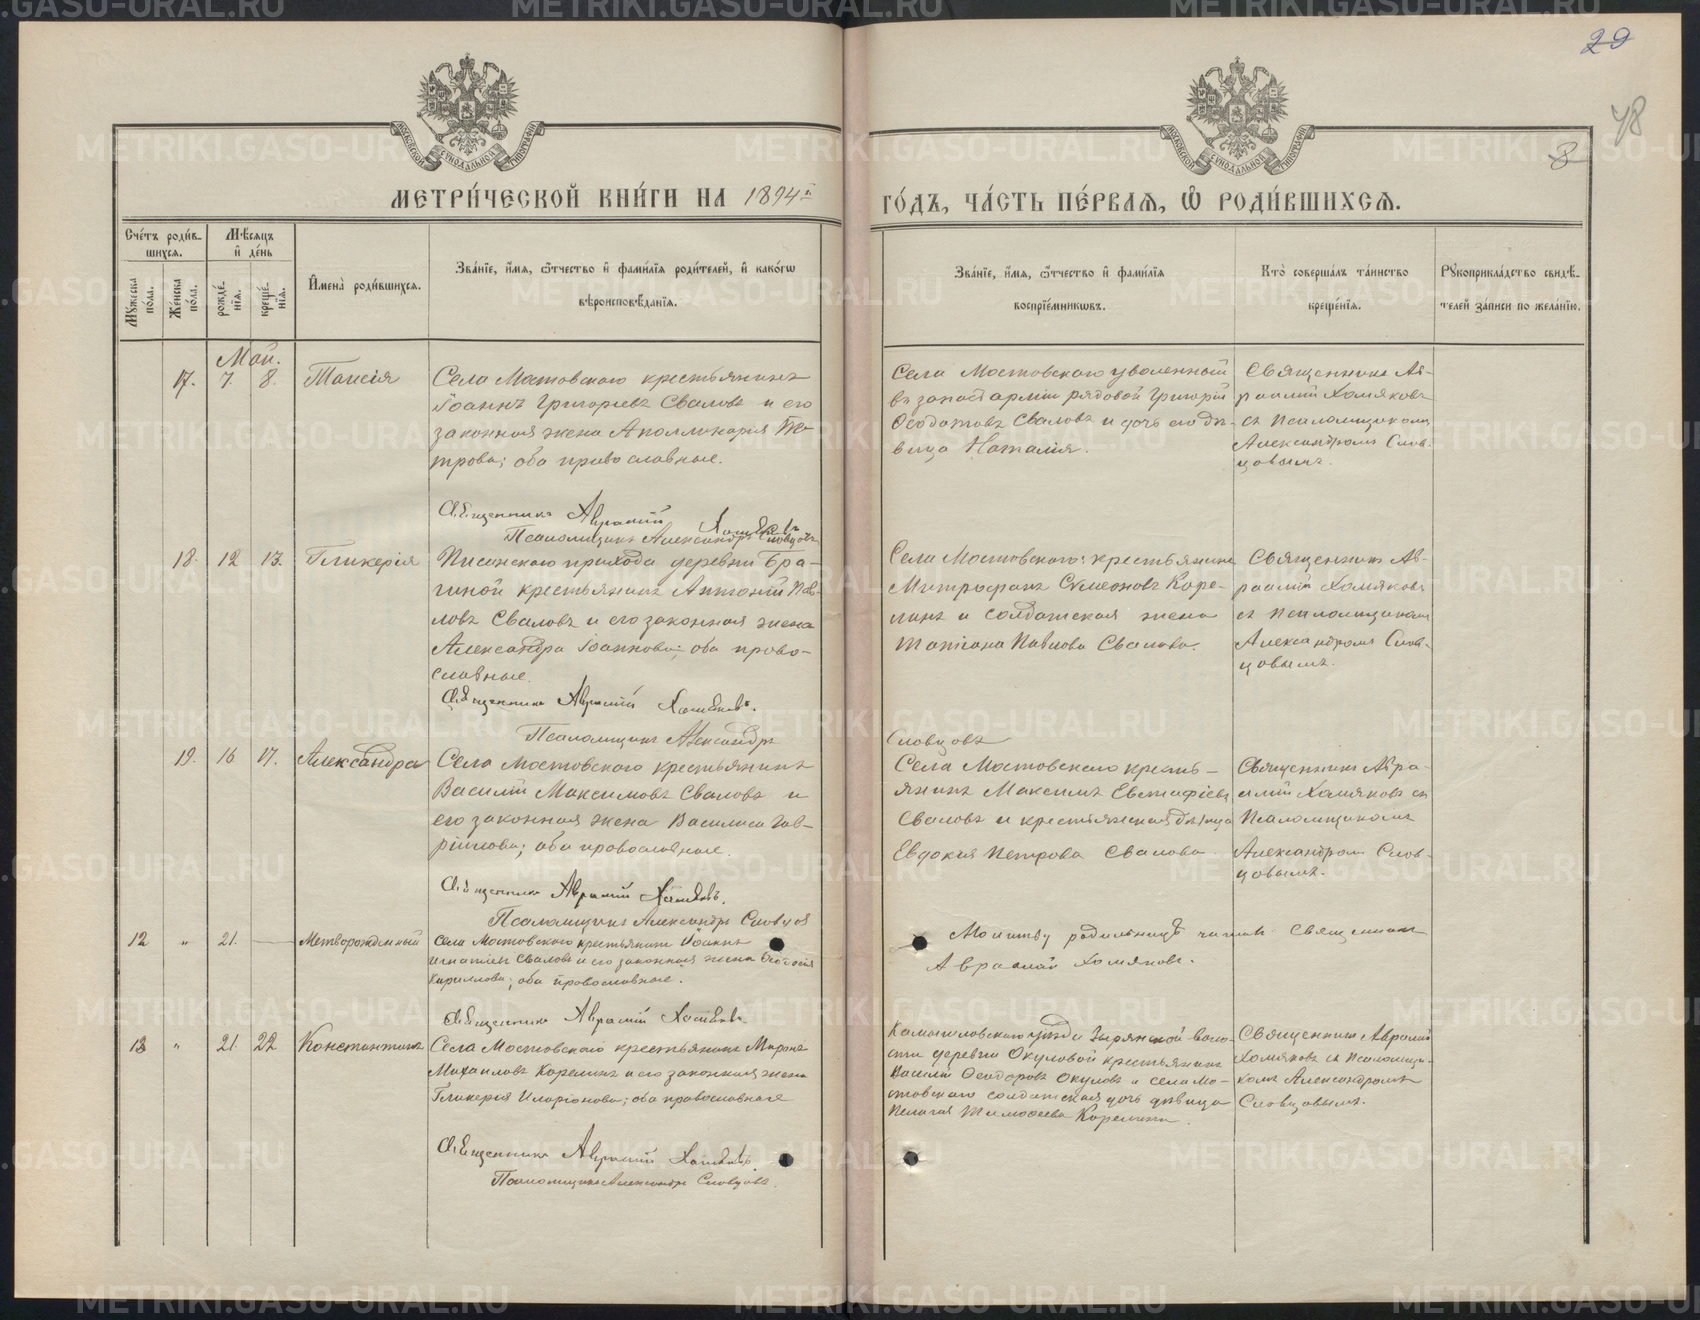 METRIKI.GASO-URAL.RU
29
48
8
МОСКОВСКОЙ СѴНОДАЛЬНОЙ ТИПОГРАФІИ
МОСКОВСКОЙ СѴНОДАЛЬНОЙ ТИПОГРАФІИ
МЕТРИ́ЧЕСКОЙ КНИ́ГИ НА 1894й
ГО́ДЪ, ЧА́СТЬ ПЕ́РВАѦ, Ѡ҆ РОДИ́ВШИХСѦ.
Сче́тъ роди́в-
шихсѧ.
Мꙋ́жеска по́ла.
Же́нска по́ла.
Мѣ́сѧцъ
и҆ де́нь
рожде́нїѧ.
креще́нїѧ.
И҆мена̀ роди́вшихсѧ.
Зва́нїе, и҆́мѧ, ѻ҆́тчество и҆ фами́лїѧ роди́телей, и҆ како́гѡ
вѣроисповѣ́данїѧ.
Зва́нїе, и҆́мѧ, ѻ҆́тчество и҆ фами́лїѧ
воспрїе́мникѡвъ.
Кто̀ соверша́лъ та́инство
креще́нїѧ.
Рꙋкоприкла́дство свидѣ́-
телей за́писи по жела́нїю.
Май.
17. 7. 8. Таисія
Села Мостовского крестьянинъ
Іоаннъ Григорьевъ Сваловъ и его
законная жена Аполлинария Пе-
трова; оба православные.
Священникъ Аврамій Хомяковъ
Псаломщикъ Александръ Словцовъ
Села Мостовского уволенный
въ запасъ арміи рядовой Григорій
Ѳеодотовъ Сваловъ и дочь его дѣ-
вица Наталія.
Священникъ Ав-
раамій Хомяковъ
съ псаломщикомъ
Александромъ Слов-
цовымъ.
18. 12 13. Гликерія
Писанскаго прихода деревни Бра-
гиной крестьянинъ Антоній Пав-
ловъ Сваловъ и его законная жена
Александра Іоаннова; оба право-
славные.
Священникъ Аврамій Хомяковъ.
Псаломщикъ Александръ Словцовъ
Села Мостовского крестьянинъ
Митрофанъ Симеоновъ Коре-
линъ и солдатская жена
Татіана Павлова Свалова.
Священникъ Ав-
раамій Хомяковъ
съ псаломщикомъ
Александромъ Слов-
цовымъ.
19. 16 17. Александра
Села Мостовского крестьянинъ
Василій Максимовъ Сваловъ и
его законная жена Василиса Гав-
ріилова; оба православные.
Священникъ Аврамій Хомяковъ.
Псаломщикъ Александръ Словцов
Села Мостовского кресть-
янинъ Максимъ Евстафіевъ
Сваловъ и крестьянская дѣвица
Евдокия Петрова Свалова
Священникъ Авра-
амій Хомяковъ съ
Псаломщикомъ
Александром Слов-
цовымъ.
12 " 21. — Метворожденный
Села Мостовского крестьянинъ Іоаннъ
Игнатіевъ Сваловъ и его законная жена Ѳеодосія
Кириллова; оба православные.
Священникъ Аврамій Хомяковъ
Молитву родильницѣ читалъ Священникъ
Авраамій Хомяковъ.
13 " 21. 22 Константинъ
Села Мостовскаго крестьянинъ Миронъ
Михаиловъ Корелинъ и его законная жена
Гликерія Иларіонова; оба православные
Священникъ Аврамій Хомяковъ.
Псаломщикъ Александръ Словцовъ.
Камышловскаго уѣзда Зырянской воло-
сти деревни Окуловой крестьянинъ
Василій Ѳеодоровъ Окуловъ и села Мо-
стовского солдатская дочь дѣвица
Пелагея Тимоѳеева Корелина.
Священникъ Аврамій
Хомяковъ съ Псаломщи-
комъ Александромъ
Словцовымъ.